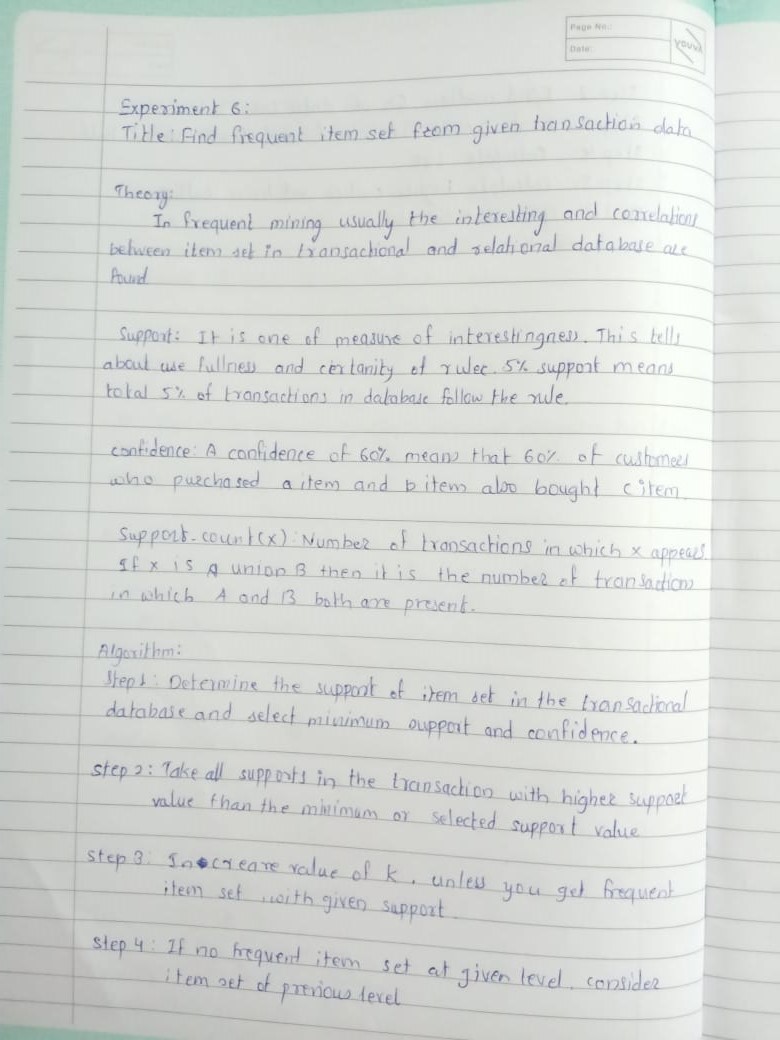 Page No.:
Date:
youva
Experiment 6:
Title: Find frequent item set from given transaction data
Theory:
In frequent mining usually the interesting and correlations
between item set in transactional and relational database are
found
Support: It is one of measure of interestingness. This tells
about usefullness and certanity of rules. 5% support means
total 5% of transactions in database follow the rule.
confidence: A confidence of 60% means that 60% of customers
who purchased a item and b item also bought c item
Support-count(x): Number of transactions in which x appears.
If x is A union B then it is the number of transactions
in which A and B both are present.
Algorithm:
Step 1: Determine the support of item set in the transactional
database and select minimum support and confidence.
step 2: Take all supports in the transaction with higher support
value than the minimum or selected support value
step 3: Increare value of k, unless you get frequent
item set with given support
step 4: If no frequent item set at given level, consider
item set of previous level